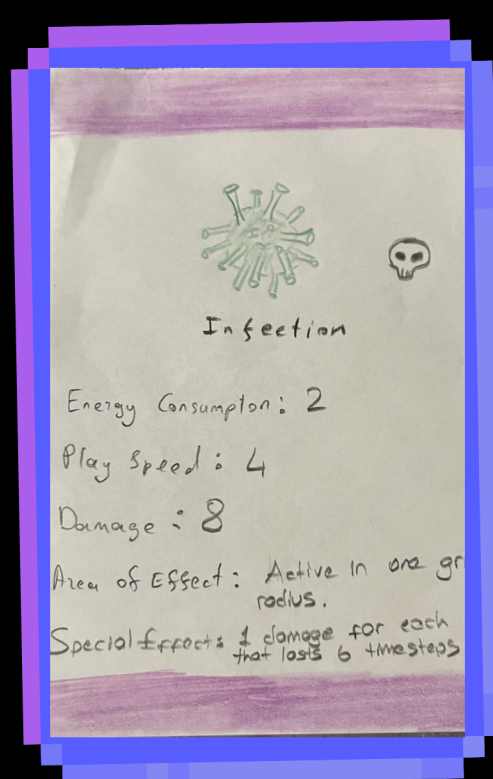 Infection
Energy Consumpton: 2
Play Speed: 4
Damage: 8
Area of Effect: Active in one
radius.
Special Effect: 1 damage for each
that lasts 6 timesteps